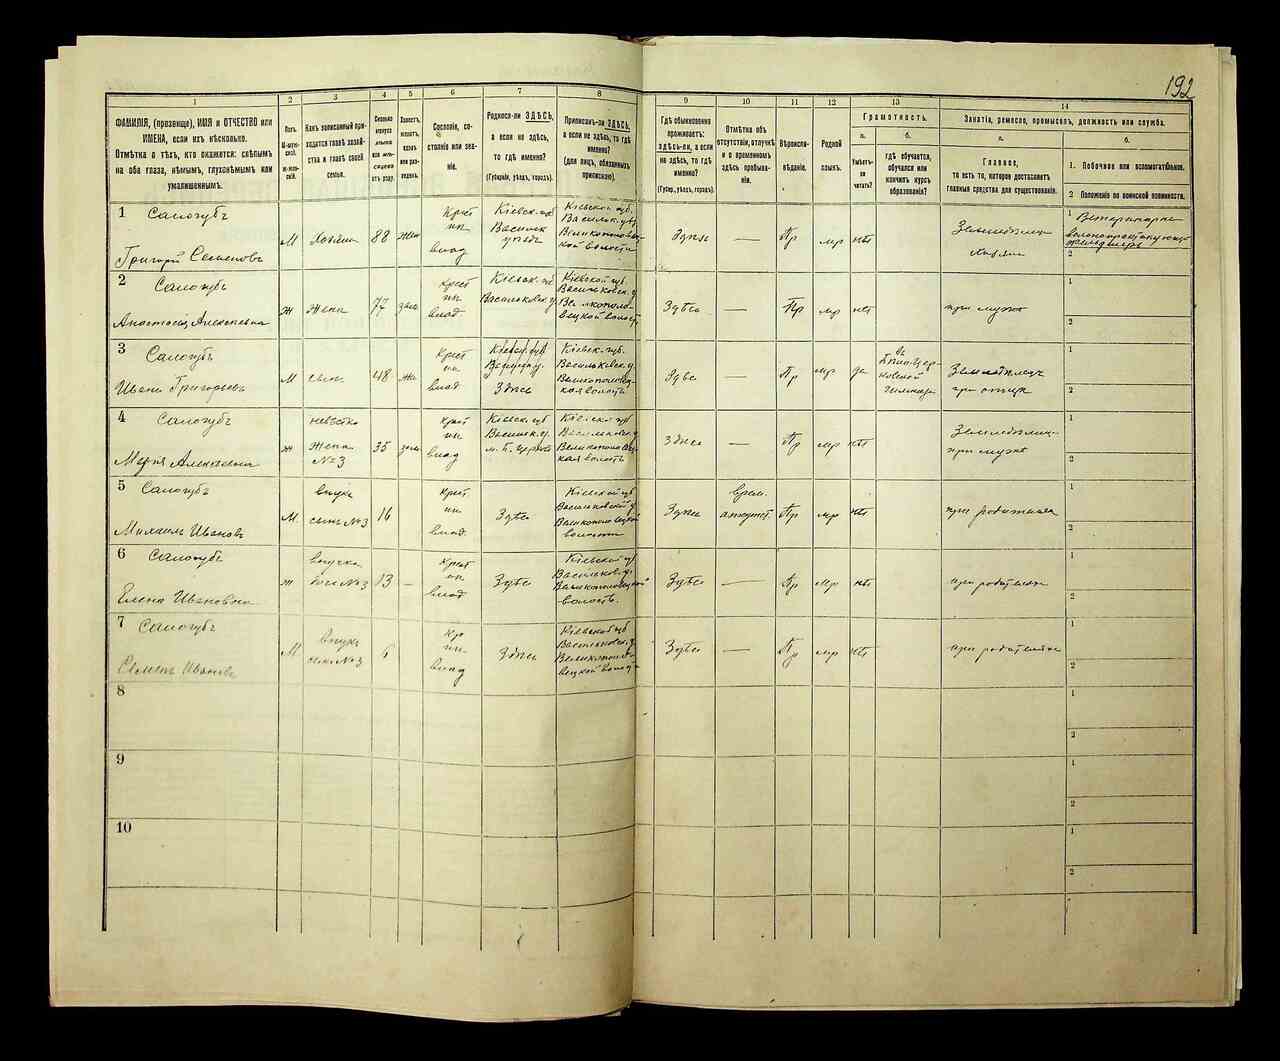 192
1
2
3
4
5
6
7
8
9
10
11
12
13
14
ФАМИЛІЯ, (прозвище), ИМЯ и ОТЧЕСТВО или
ИМЕНА, если ихъ нѣсколько.
Отмѣтка о тѣхъ, кто окажется: слѣпымъ
на оба глаза, нѣмымъ, глухонѣмымъ или
умалишеннымъ.
Полъ
М-мужской.
Ж-женскій.
Какъ записанный приходится
главѣ хозяйства
и главѣ своей
семьи.
Сословіе, состояніе
или званіе.
Родился-ли ЗДѢСЬ,
а если не здѣсь,
то гдѣ именно?
(Губернія, уѣздъ, городъ).
Приписанъ-ли ЗДѢСЬ,
а если не здѣсь, то гдѣ
именно?
(для лицъ, обязанныхъ
припискою).
Гдѣ обыкновенно
проживаетъ:
здѣсь-ли, а если
не здѣсь, то гдѣ
именно?
(Губер., уѣздъ, городъ).
Отмѣтка объ
отсутствіи, отлучкѣ
и о временномъ
здѣсь пребываніи.
Вѣроисповѣданіе.
Родной
языкъ.
Грамотность.
а.
Умѣетъ-ли
читать?
б.
гдѣ обучается,
обучался или
кончилъ курсъ
образованія?
Занятіе, ремесло, промыселъ, должность или служба.
а.
Главное,
то есть то, которое доставляетъ
главныя средства для существованія.
б.
1. Побочное или вспомогательное.
2 Положеніе по воинской повинности.
1 Салогубъ
Григорій Семеновъ
М Хозяинъ 88 жен
Крест
ин
влад
Кіевск. губ
Васильк
уѣздъ
Кіевской губ.
Васильк. уѣз
Великополовецкой
волости
Здѣсь — Пр мр нѣт
Земледѣлец
1
2
2 Салогубъ
Анастасія Алексѣевна
ж Жена 77 зам
Крест
ин
влад.
Кіевск. губ
Васильковск. у.
Кіевской губ.
Васильковск.
Великополовецкой
волости
Здѣсь — Пр мр нѣт
при мужѣ
1
2
3 Салогубъ
Иванъ Григорьевъ
М сынъ 48 же
Крест
ин
влад
Кіевск. губ
Здѣсь
Кіевск. губ.
Васильковск. у.
Великополовецкая
волость
Здѣсь — Пр мр да
въ
Бѣлоцерковской
Гимназіи
Земледѣлецъ
при отцѣ
1
2
4 Салогубъ
Марія Алексѣевна
ж
невѣстка
Жена
№3
35 зам
Крест
ин
влад
Кіевск. губ
Васильк. у.
м. Б. Церковь
Кіевск. губ
Васильковск. у
Великополовецкая
волость
Здѣсь — Пр мр нѣт
Земледѣлец
при мужѣ
1
2
5 Салогубъ
Михаилъ Ивановъ
М.
внукъ
сынъ №3
16
Крест.
ин
влад.
Здѣсь
Кіевской губ
Васильковской у
Великополовецкой
волости
Здѣсь
врем.
отсутст.
Пр мр нѣт
при родителяхъ
1
2
6 Салогубъ
Елена Ивановна
ж
внучка
дочь №3
13 —
Крест
ин
влад.
Здѣсь
Кіевской гу
Васильков. у.
Великополовецкой
волость.
Здѣсь — Пр мр нѣт
при родителяхъ
1
2
7 Салогубъ
М
внукъ
сынъ №3
6
Кре
ин.
влад
Здѣсь
Кіевской губ
Васильковск. у
Великополовецкой
волости
Здѣсь — Пр мр нѣт
при родителяхъ
1
2
8
1
2
9
1
2
10
1
2